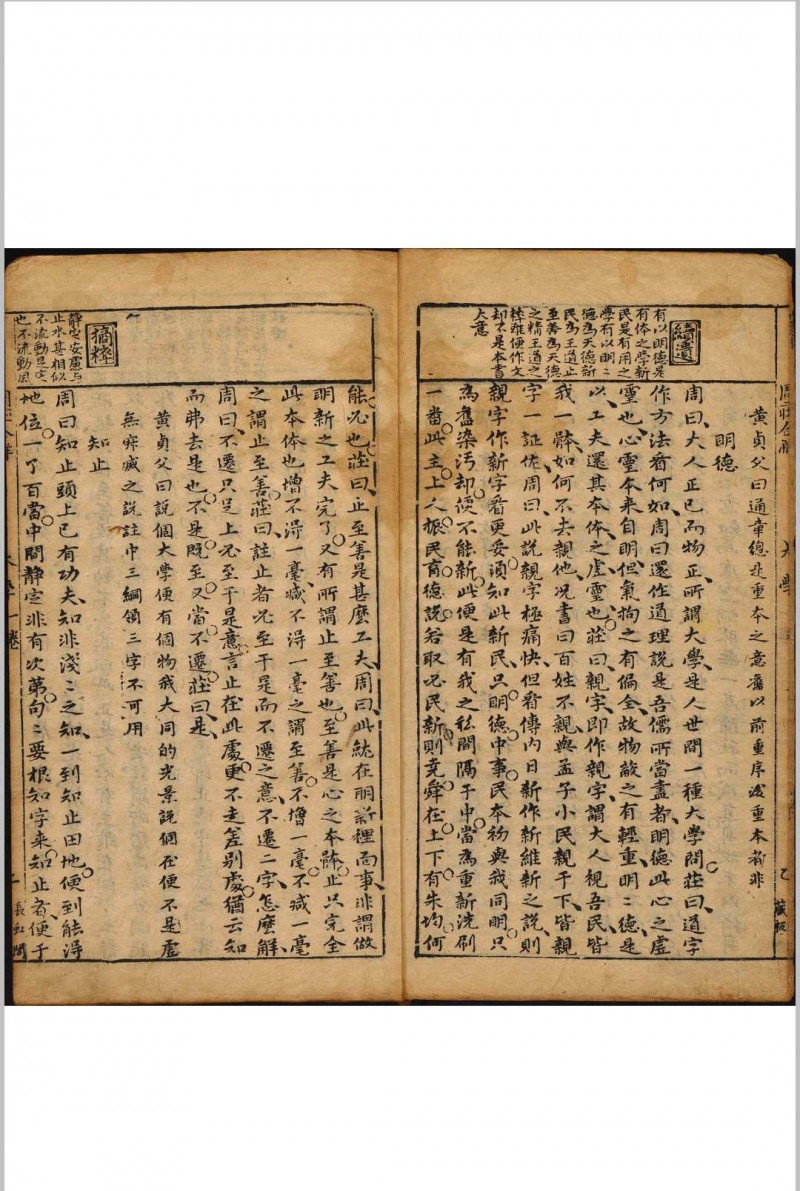 續遺
有以明德是
有体之學新
民是有用之
學有以明二
德為天德新
民為王道止
至善為天德
之精王道之
粹雖便作文
却不是本書
大意
黃貞父曰通章總是重本之意舊以前重序後重本者非
明德
周曰大人正己而物正所謂大學是人世間一種大學問莊曰道字
作方法看何如周曰還作道理說是吾儒所當盡者明德此心之虛
靈也心靈本來自明但氣拘之有偏全故物蔽之有輕重明二德是
以工夫還其本体之虛靈也莊曰親字即作親字謂大人視吾民皆
我一體如何不去親他况書曰百姓不親與孟子小民親于下皆親
字一証佐周曰此說親字極痛快但看傳內日新作新維新之說則
親字作新字看更妥須知此新民只明德中事民本初與我同明只
為舊染汚却便不能新此便是有我之私間隔于中當為重新洗刷
一番此主上人振民育德說若取必民新則堯舜在上下有朱均何
大學
乙
藏板
能必也莊曰止至善是甚麼工夫周曰此統在明新裡面事非謂做
明新之工夫完了又有所謂止至善也至善是心之本體止只完全
此本体也增不得一毫減不得一毫之謂至善不增一毫不減一毫
之謂止至善莊曰註止者必至于是而不遷之意不遷二字怎麼解
周曰不遷只足上必至于是意言止在此處更不走差別處猶云知
而弗去是也不是既至又當不遷莊曰是
黃貞父曰說個大學便有個物我大同的光景說個在便不是虛
無寂滅之說註中三綱領三字不可用
知止
周曰知止頭上已有功夫知非淺二之知一到知止田地便到能得
地位一了百當中間靜定非有次第句二要根知字來知止者便于
摘粹
靜定安慮与
止水甚相似
不流動是定
也不流動風
大學一卷
二
長虹閣